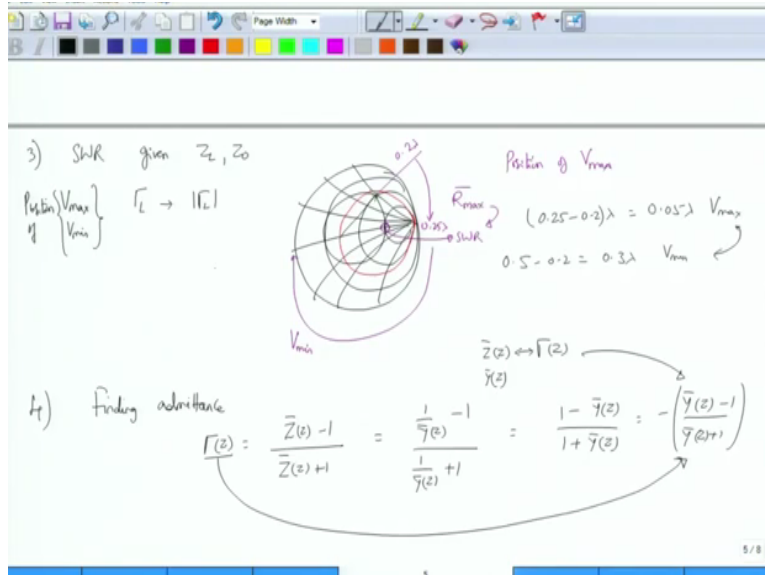 Page Width
B I
3) SWR given Z_L, Z_0
Position of { V_max V_min }
Γ_L → |Γ_L|
0.2λ
0.25λ
R̄_max
SWR
V_min
Position of V_max
(0.25-0.2)λ = 0.05λ V_max
0.5-0.2 = 0.3λ V_min
Z̄(z) ↔ Γ(z)
Ȳ(z)
4) Finding admittance
Γ(z) = (Z̄(z) - 1)/(Z̄(z) + 1) = (1/Ȳ(z) - 1)/(1/Ȳ(z) + 1) = (1 - Ȳ(z))/(1 + Ȳ(z)) = -((Ȳ(z) - 1)/(Ȳ(z) + 1))
5/8